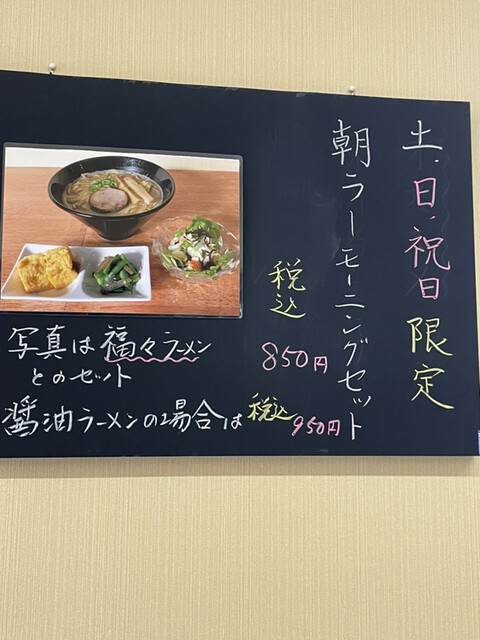 土・日・祝日限定
朝ラーモーニングセット
税込
850円
写真は福々ラーメン
とのセット
醤油ラーメンの場合は税込950円